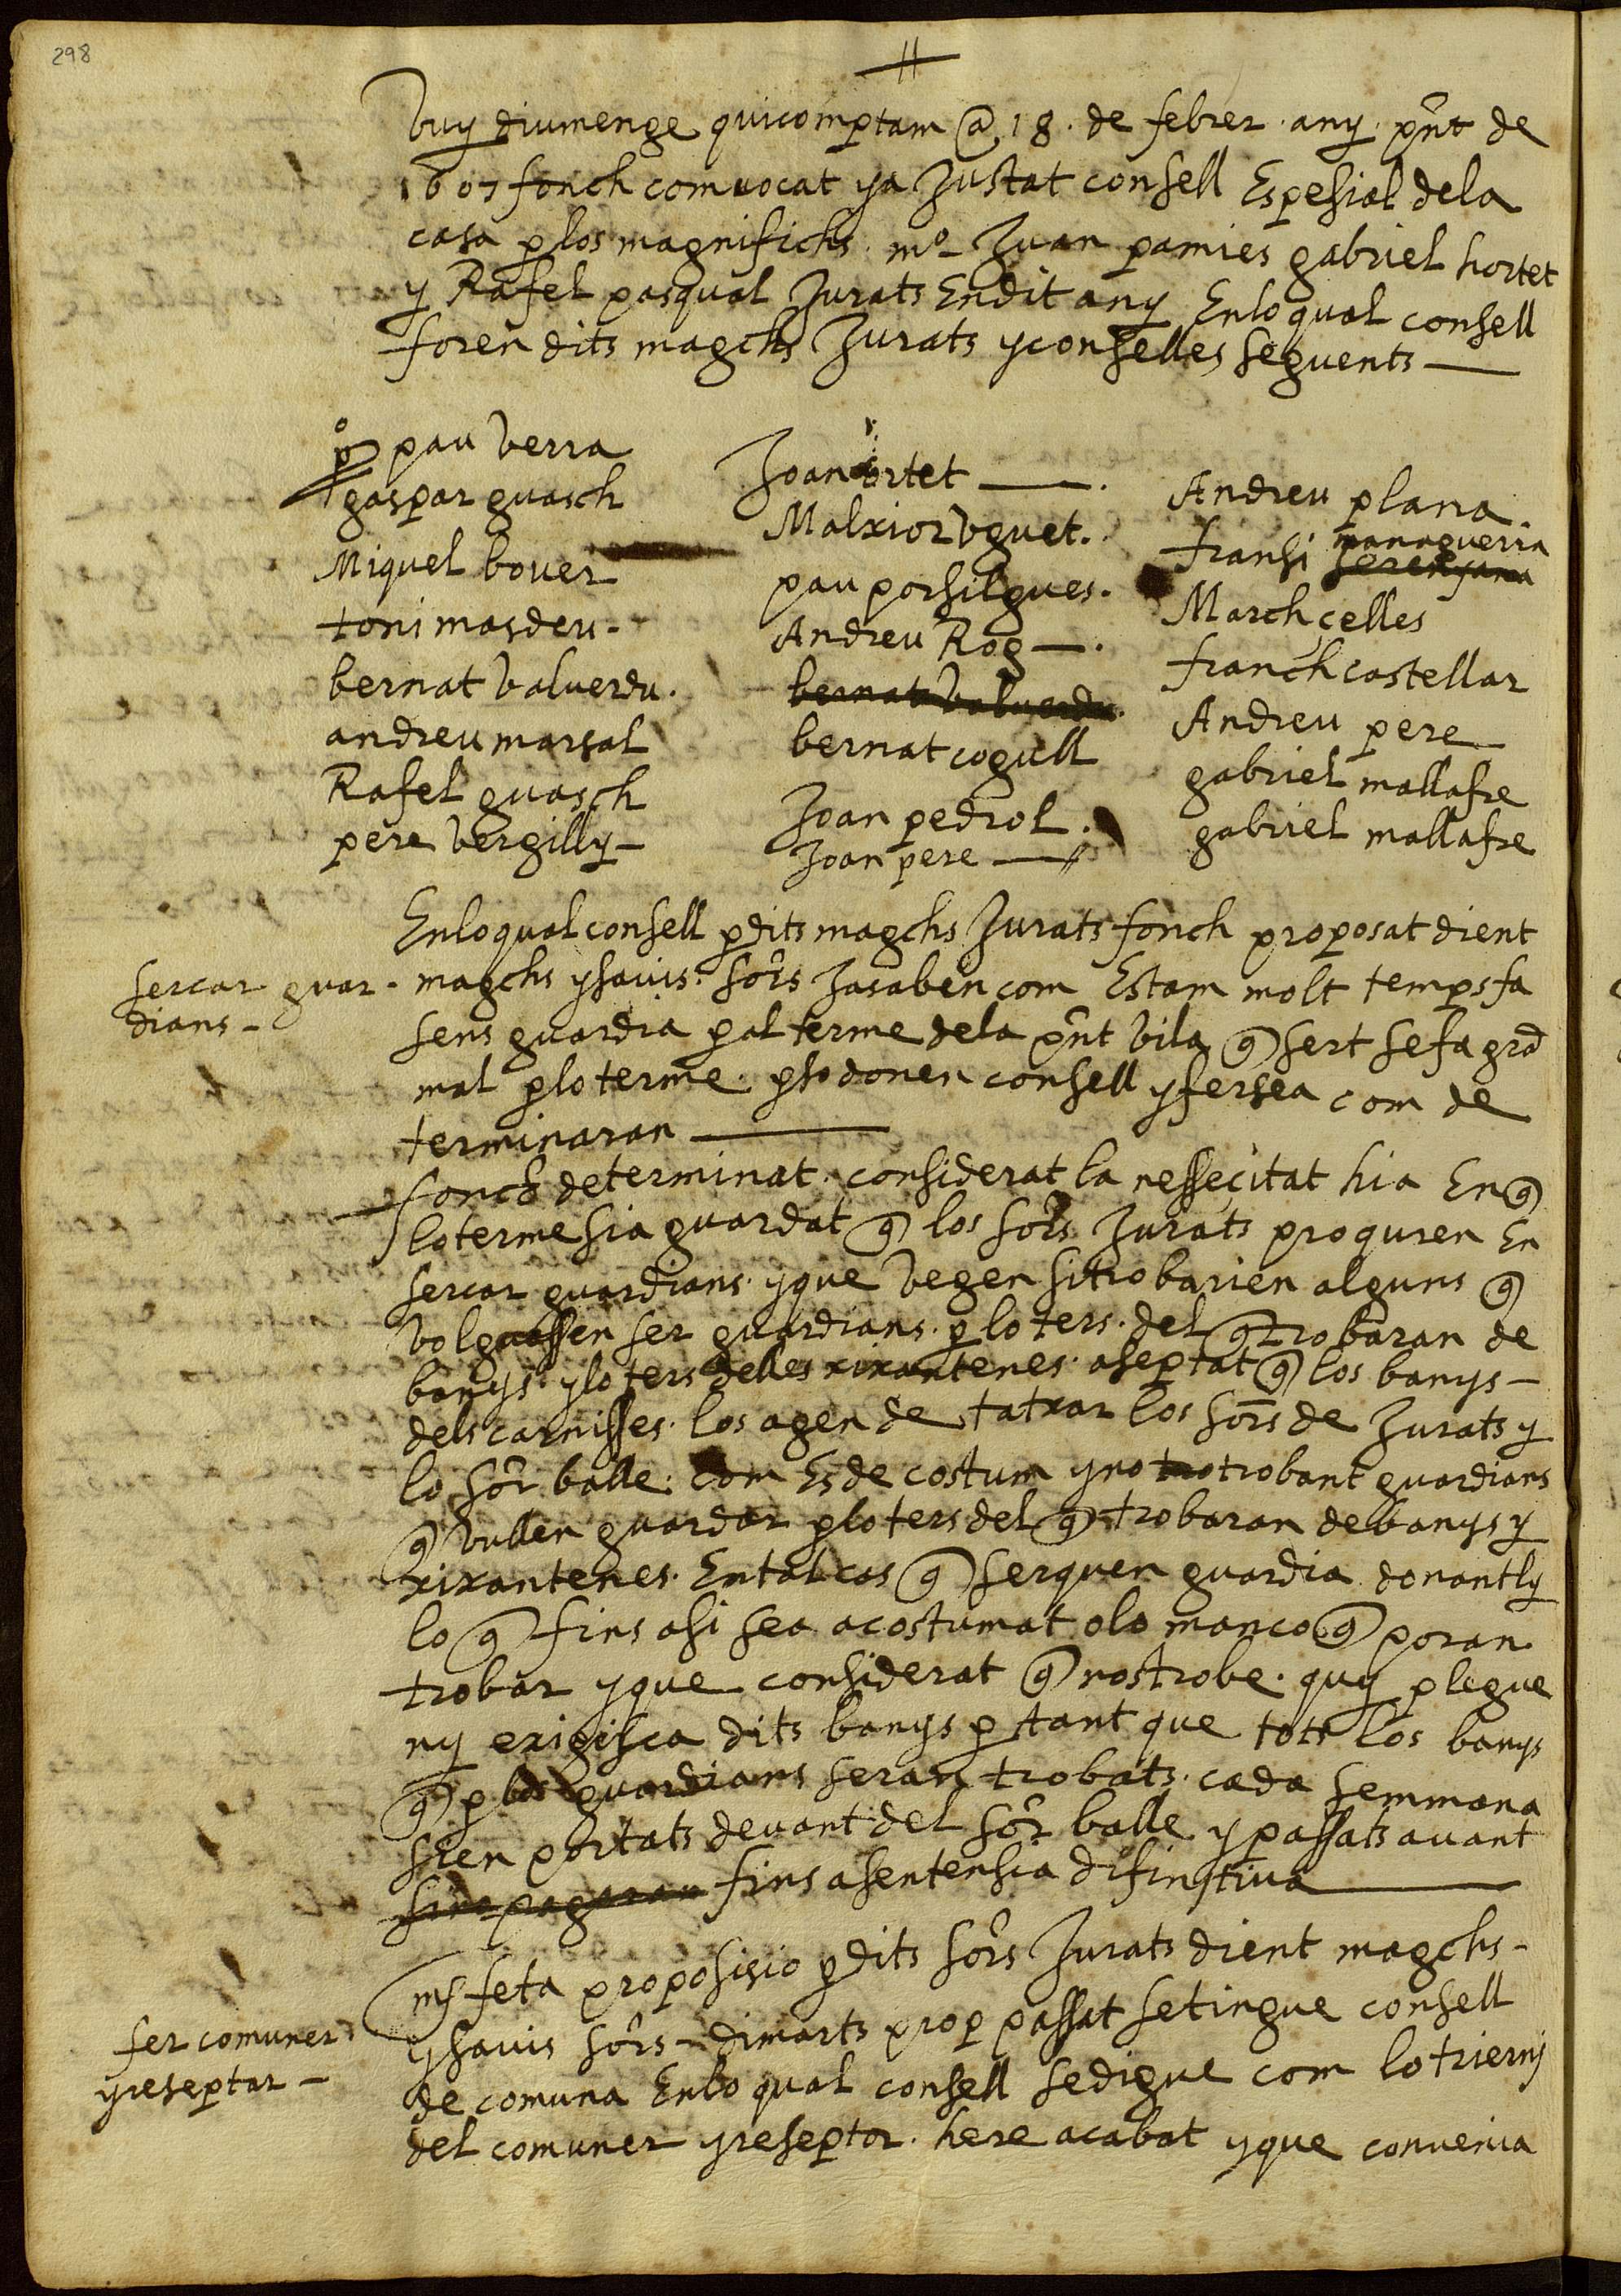 298
Vuy diumenge quicomptam @ 18 · de febrer · any · pñt de
1607 fonch comvocat ya Justat consell Espesial dela
casa p los magnifichs · mº Juan pamies gabriel hortet
y Rafel pasqual Jurats Endit any Enlo qual consell
foren dits magchs Jurats yconselles seguents —
pº pau verra
gaspar guasch
Miquel bover
toni masdeu -
bernat valverdu ·
andreu marsal
Rafel guasch
pere vergilly -
Joan ortet — ·
Malxior uguet ·
pau porsilgues ·
Andreu Rog — ·
bernat valverdu ·
bernat cogull
Joan pedrol ·
Joan pere —
Andreu plana
fransi managuerra
March çelles
franch castellar
Andreu pere
gabriel mallafre
gabriel mallafre
Enlo qual consell p dits magchs Jurats fonch proposat dient
sercar guar -
dians -
magchs ysavis · sõrs Jasaben com Estam molt temps fa
sens guardia p al terme dela pñt vila q sert se fa grã
mal p lo terme · yso donen consell yfersea com de
terminaran —
fonch determinat · considerat la nessecitat hia En q
lo terme sia guardat q los sõrs Jurats proquren En
sercar guardians · yque vegen sitrobarien alguns q
volguessen ser guardians · p lo ters · del q trobaran de
banys · ylo ters delles xixantenes · aseptat q los banys -
dels carnisses · los agen de tatxar los sõrs de Jurats y
lo sõr balle · com Es de costum yno trobant guardians
q vullen guardar p lo ters del q trobaran de banys y
xixantenes · En tal cas q serquen guardia donantly
lo q fins asi sea acostumat o lo manco q poran
trobar yque considerat q nostrobe · quy plegue
ny exigisca dits banys p tant que tots los banys
q p los guardians seran trobats · cada semmana
sien portats devant del sõr balle y passats avant
sino pagaran fins a sentensia difinitiva —
ms feta proposisio p dits sõrs Jurats dient magchs -
fer comuner
yreseptor -
ysavis sõrs - dimarts prop passat setingue consell
de comuna Enlo qual consell sedigue com lo trieny
del comuner yreseptor · here acabat yque convenia